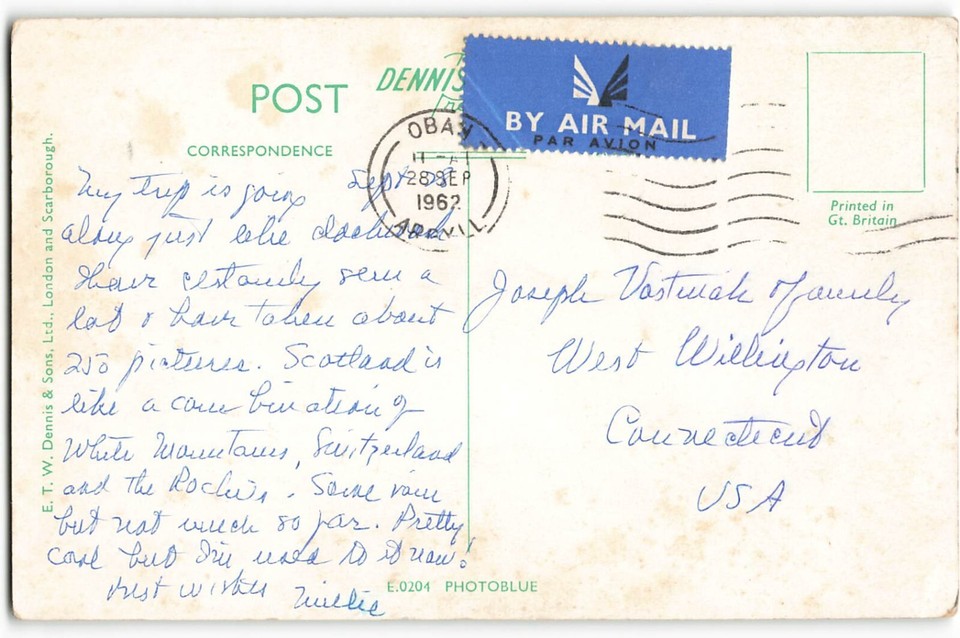 POST
DENNIS
BY AIR MAIL
PAR AVION
OBAN
28 SEP
1962
ARGYLL
CORRESPONDENCE
Printed in
Gt. Britain
E. T. W. Dennis & Sons, Ltd., London and Scarborough.
My trip is going Sept 28
along just like clockwork
I have certainly seen a
lot & have taken about
250 pictures. Scotland is
like a combination of
White Mountains, Switzerland
and the Rockies. Some rain
but not much so far. Pretty
cool but I'm used to it now!
Best wishes Millie
Joseph & family
West Willington
Connecticut
USA
E.0204 PHOTOBLUE